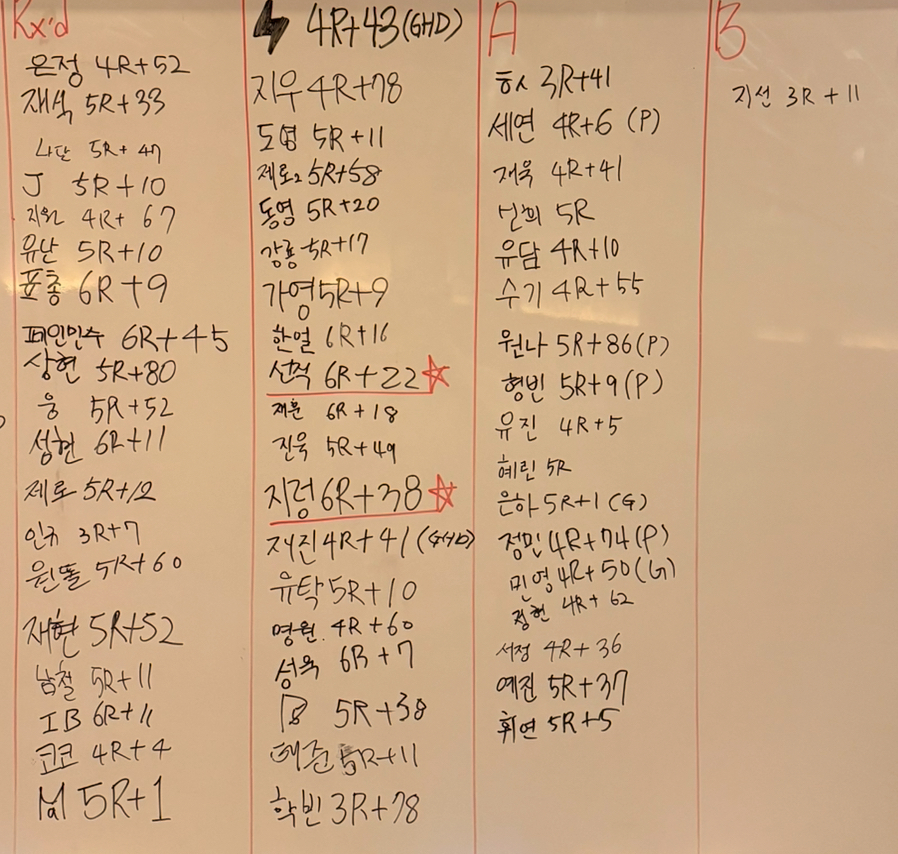 Rx'd
은정 4R+52
재석 5R+33
나단 5R+47
J 5R+10
지원 4R+67
유난 5R+10
표총 6R+9
페인민수 6R+45
상현 5R+80
웅 5R+52
성현 6R+11
제로 5R+12
인규 3R+7
윈똘 5R+60
재현 5R+52
남철 5R+11
IB 6R+11
코코 4R+4
5R+1
4R+43(GHD)
지우 4R+78
도영 5R+11
제로2 5R+58
동영 5R+20
강룡 5R+17
가영 5R+9
한열 6R+16
선적 6R+22
재훈 6R+18
진욱 5R+49
지렁 6R+38
재진 4R+41(GHD)
유탁 5R+10
영원 4R+60
성욱 6R+7
5R+38
태준 5R+11
학빈 3R+78
A
3R+41
세연 4R+6 (P)
재욱 4R+41
민희 5R
유담 4R+10
수기 4R+55
원나 5R+86(P)
형빈 5R+9(P)
유진 4R+5
혜린 5R
은하 5R+1(G)
정민 4R+74(P)
민영 4R+50(G)
정현 4R+62
서정 4R+36
예진 5R+37
휘연 5R+5
B
지선 3R+11